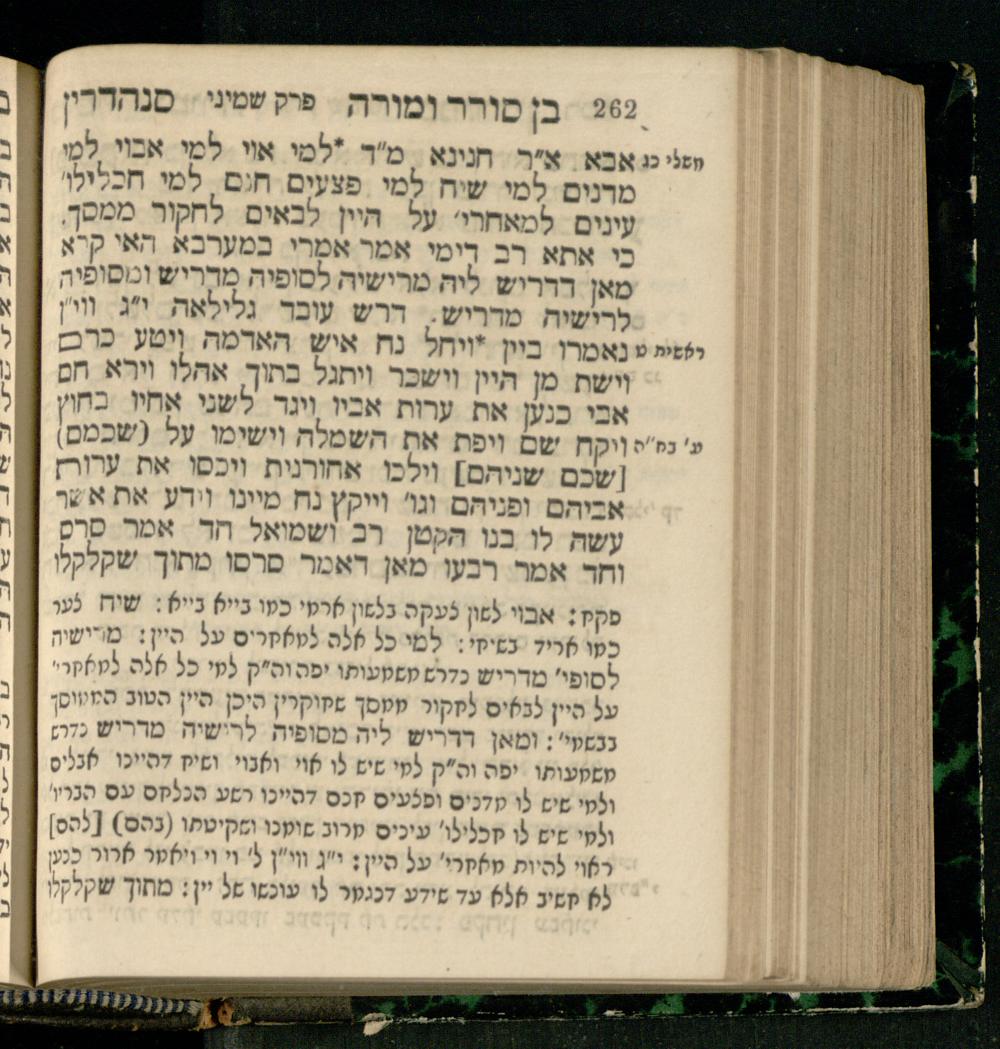 262 בן סורר ומורה פרק שמיני סנהדרין
משלי כג אבא א״ר חנינא מ״ד *למי אוי למי אבוי למי
מדנים למי שיח למי פצעים חנם למי חכלילו׳
עינים למאחרי׳ על היין לבאים לחקור ממסך.
כי אתא רב דימי אמר אמרי במערבא האי קרא
מאן דדריש ליה מרישיה לסופיה מדריש ומסופיה
לרישיה מדריש. דרש עובר גלילאה י״ג ווי״ן
ראשית ט נאמרו ביין *ויחל נח איש האדמה ויטע כרם
וישת מן היין וישכר ויתגל בתוך אהלו וירא חם
אבי כנען את ערות אביו ויגד לשני אחיו בחוץ
ע׳ בח״ה ויקח שם ויפת את השמלה וישימו על (שכמם)
[שכם שניהם] וילכו אחורנית ויכסו את ערות
אביהם ופניהם וגו׳ וייקץ נח מיינו וידע את אשר
עשה לו בנו הקטן רב ושמואל חד אמר סרס
וחד אמר רבעו מאן דאמר סרסו מתוך שקלקלו
פקח: אבוי לשון צעקה בלשון ארמי כמו בייא בייא: שיח צער
כמו אריד בשיחי: למי כל אלה למאחרים על היין: מרישיה
לסופי׳ מדריש נדרש משמעותו יפה וה״ק למי כל אלה למאחרי׳
על היין לבאים לחקור ממסך שחוקרין היכן היין הטוב הממוסך
בבשמי׳: ומאן דדריש ליה מסופיה לרישיה מדריש נדרש
משמעותו יפה וה״ק למי שיש לו אוי ואבוי ושיח דהיינו אבלים
ולמי שיש לו מדנים ופצעים חנם דהיינו רשע הנלחם עם הבריו׳
ולמי שיש לו חכלילו׳ עינים מרוב שומנו ושקיטתו (בהם) [להם]
ראוי להיות מאחרי׳ על היין: י״ג ווי״ן ל׳ וי וי ויאמר ארור כנען
לא חשיב אלא עד שידע דכגמר לו עונשו של יין: מתוך שקלקלו